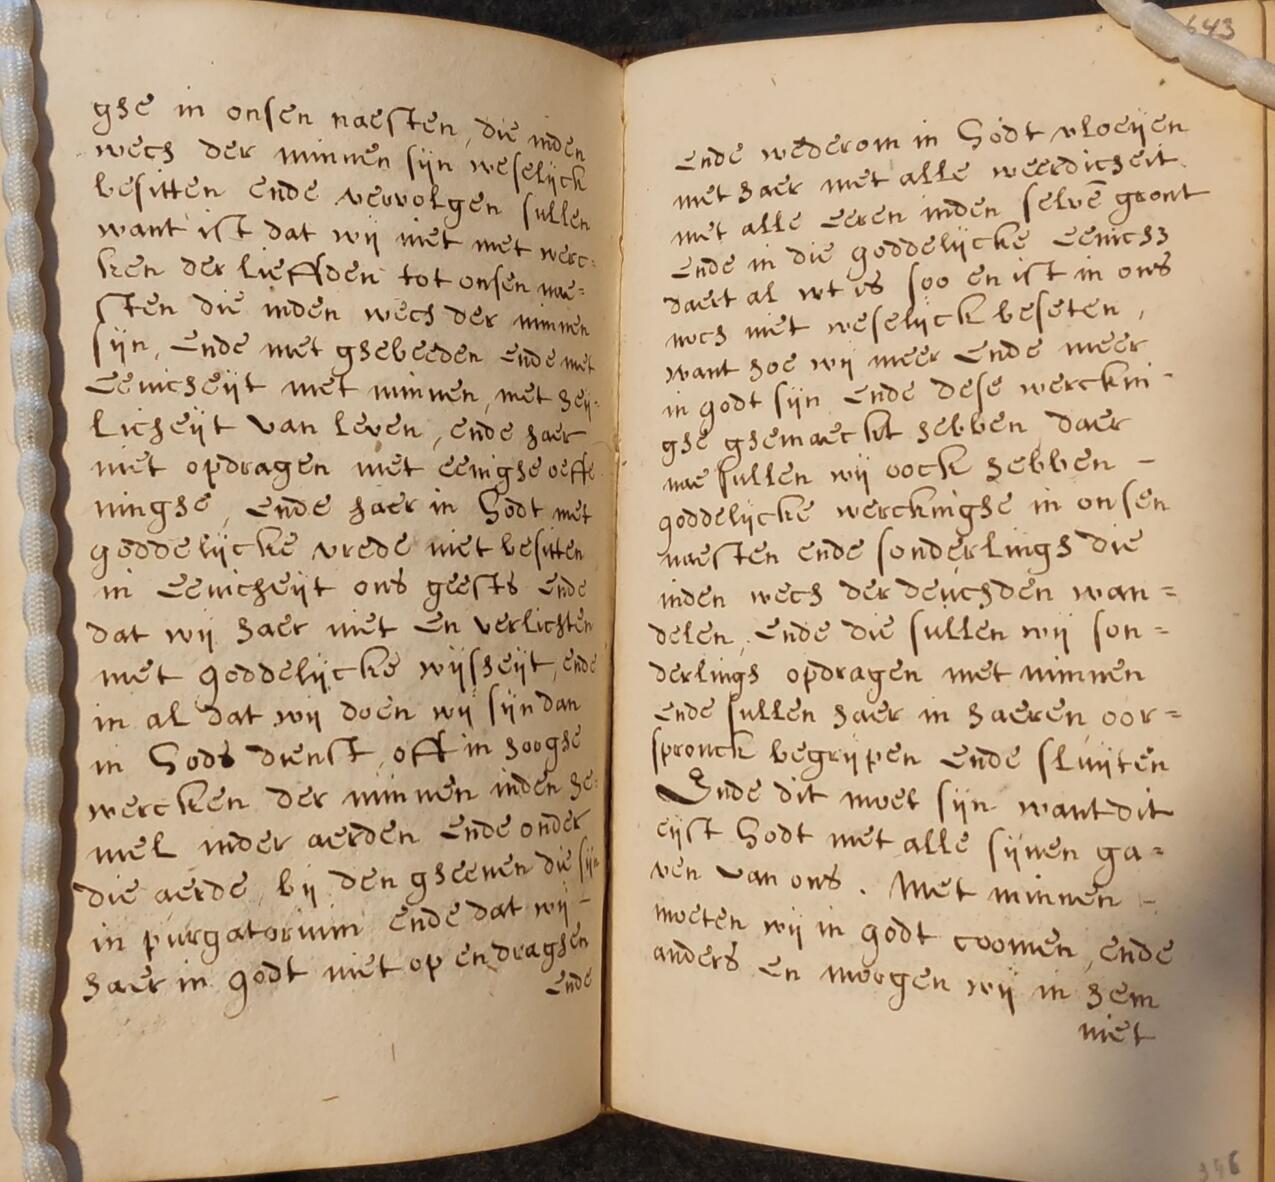 ghe in onsen naesten, die inden
wech der minnen sijn weselijck
besitten ende vervolgen sullen
want ist dat wij niet met werc=
ken der liefden tot onsen nae=
sten die inden wech der minnen
sijn, ende met ghebeeden ende met
eenicheijt met minnen, met heij-
licheijt van leven, ende haer
niet opdragen met eenighe oeffe
ninghe, ende haer in Godt met
goddelijcke vrede niet besitten
in eenicheijt ons geests ende
dat wij haer niet en verlichten
met goddelijcke wijsheijt, ende
in al dat wij doen wij sijn dan
in Gods dienst, off in hooghe
wercken der minnen inden he-
mel inder aerden ende onder
die aerde, bij den gheenen die sijn
in purgatorium ende dat wij -
haer in godt niet op en draghen
ende
643
ende wederom in Godt vloeijen
met haer met alle weerdicheit
met alle eeren inden selvē gront
ende in die goddelijcke eenich3
daert al wt is soo en ist in ons
noch niet weselijck beseten,
want hoe wij meer ende meer
in godt sijn ende dese werckni-
ghe ghemaeckt hebben daer
nae sullen wij oock hebben -
goddelijcke werckinghe in onsen
naesten ende sonderlingh die
inden wech der deuchden wan=
delen, ende die sullen wij son=
derlingh opdragen met minnen
ende sullen haer in haeren oor=
spronck begrijpen ende sluijten
Ende dit moet sijn want dit
eijst Godt met alle sijnen ga=
ven van ons. Met minnen -
moeten wij in godt coomen, ende
anders en moogen wij in hem
niet
346